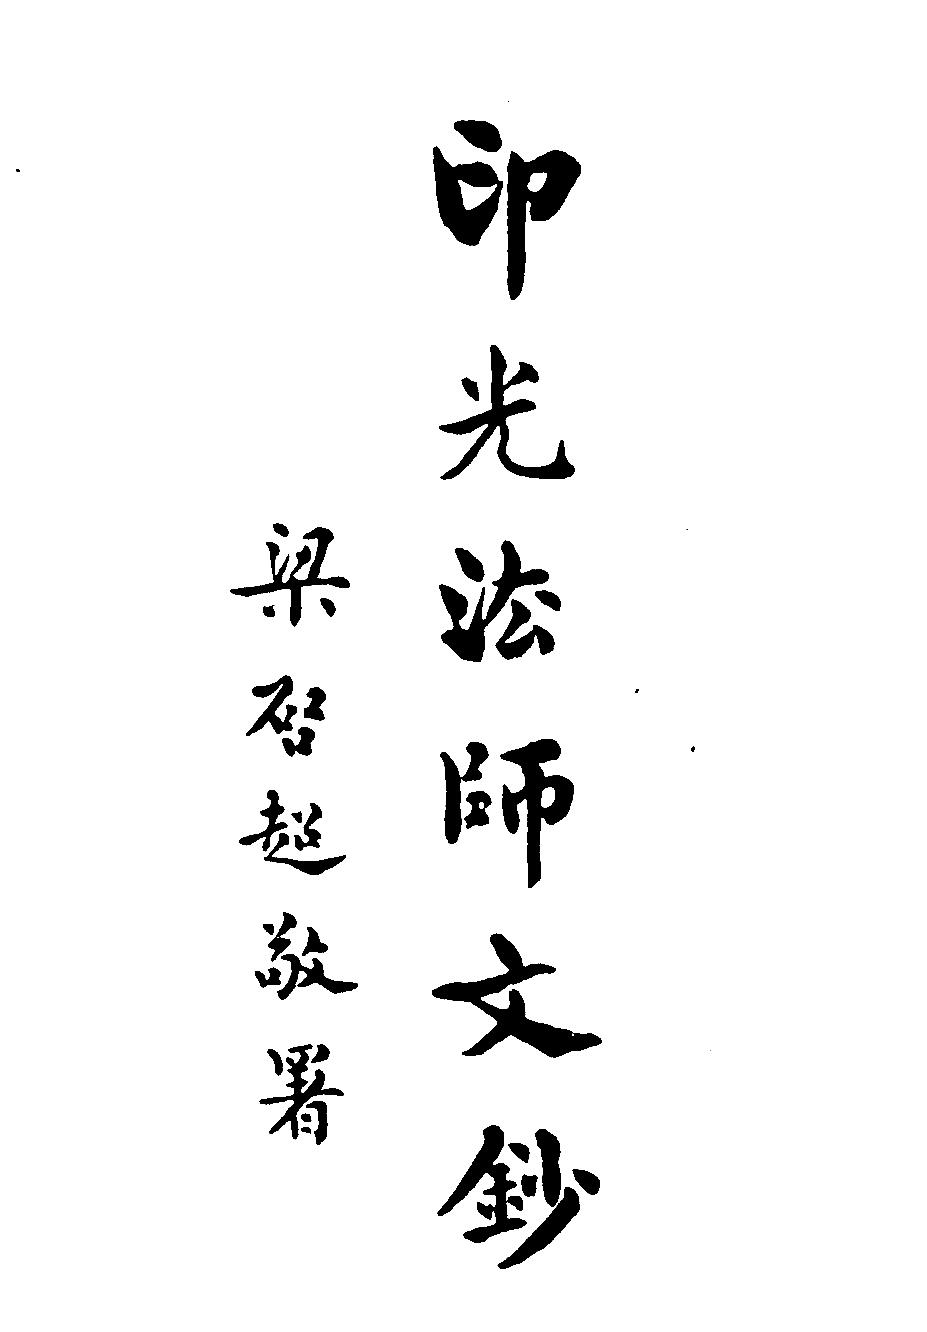 印光法師文鈔
梁啓超敬署